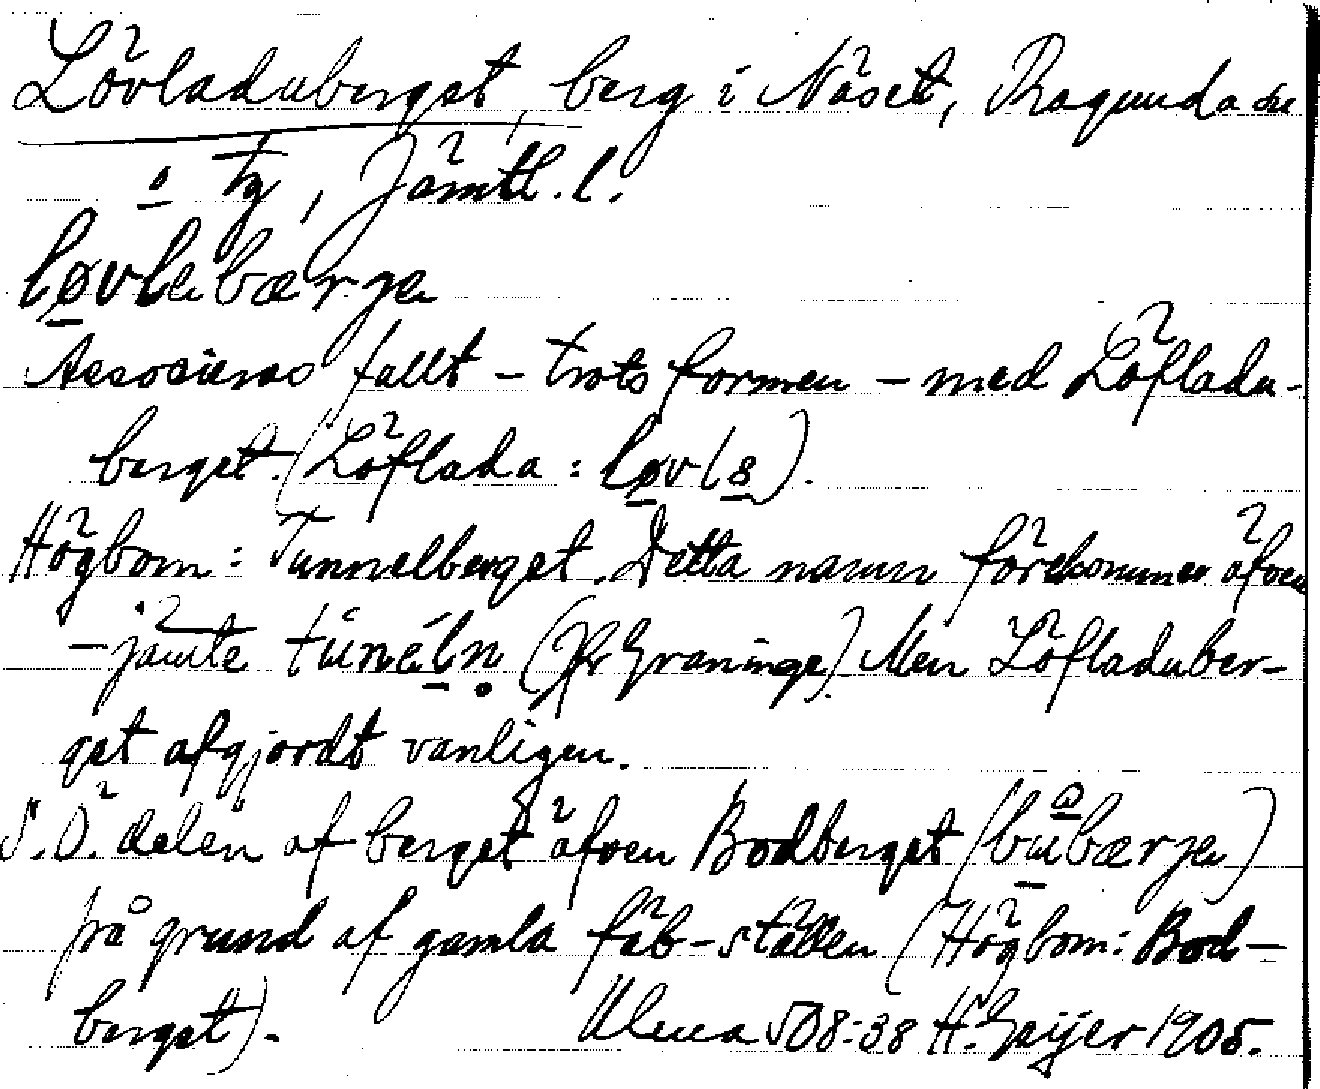 Lövladuberget, berg i Näset, Ragunda sn
o tg, Jämtl. l.
løvlebærje
Associeras fullt – trots formen – med Löfladu-
berget. (Löflada: løvla).
Högbom: Tunnelberget. Detta namn förekommer äfven
– jämte tùnéln (Fr Graninge). Men Löfladuber-
get afgjordt vanligen.
S.Ö. delen af berget äfven Bodberget (bubærje)
på grund af gamla fäb-ställen (Högbom: Bod-
berget). Ulma 508:38 H. Geijer 1905.